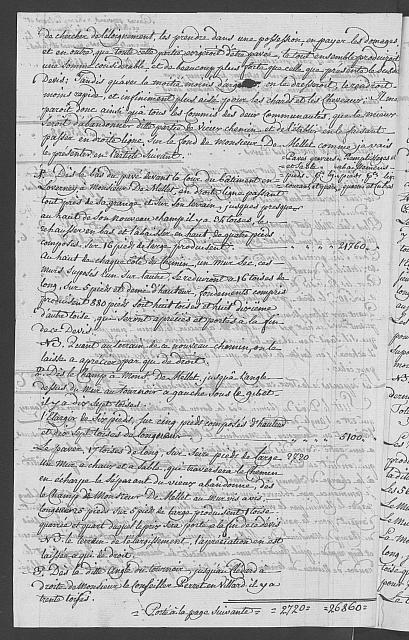 de chercher de l'élorgement, les prendre dans une possession, en payer les domages,
et en outre que toute cette partie exigeroit d'être pavée, le tout ensemble produiroit
une somme considérable, et de beaucoup plus forte que celle que presente le sus dit
Devis; Tandis qu'avec la moitié moins d'argent en la dressant, le rendroit
moins rapide, et infiniment plus aisée, pour les chards et les Chevaux. Il me
paroit donc ainsi qu'à tous les commis des deux communautés, que le mieux
seroit d'abandonner cette partie de vieux chemin, et de l'établir en le faisant
passer en droite ligne, sur le fond de Monsieur De Mellet, comme je vais
le presenter en l'article suivant.
Dès le bas du pavé devant la cour du bâtiment en
à Monsieur De Mellet, en droite ligne passant
tout près de la grange et sur son terrain, jusques presque
au haut de son nouveau champ il y a 34 toises, le
rehausser en bas et l'abaisser en haut de quatre pieds
composés, sur 16 pieds de large produisent 21760
Au haut de chaque côté du chemin, un mur sec, ces
murs suposés l'un sur l'autre, se reduiront à 16 toises de
long, sur 5 pieds et demi d'hauteur, fondements compris
produisent 880 pieds soit huit toises et huit dixième
d'autre toise, qui seront apretiés et portés à la fin
de ce Devis.
N.B. Quant au terrain de ce nouveau chemin, on le
laisse à apretier par qui de droit.
Dès le champ à Mons.r De Mellet, jusqu'à l'angle
dessus du mur au tournoir à gauche sous le gibet
il y a dix sept toises.
L'Elargir de six pieds, sur cinq pieds composés d'hauteur
et dix sept toises de longueur 5100
Le pavée, 17 toises de long, sur seize pieds de large 2720
Un mur à chaux et à sable, qui traversera le chemin
en écharpe le séparant du vieux abandonné, dès
le champ de Monsieur De Mellet au mur vis à vis,
longueur 25 pieds sur 5 pieds de large produisent 1 toise
quarrée et quart duquel le prix sera porté à la fin de ce devis
N.B. le terrain de l'élargissement, l'apretiation en est
laissée à qui de droit.
Dès la ditte Angle du tournoir, jusqu'au
droite de Monsieur le Conseiller Perrot en Villard il y a
trente toises.
Porté à la page suivante = 2720 = 26860 =